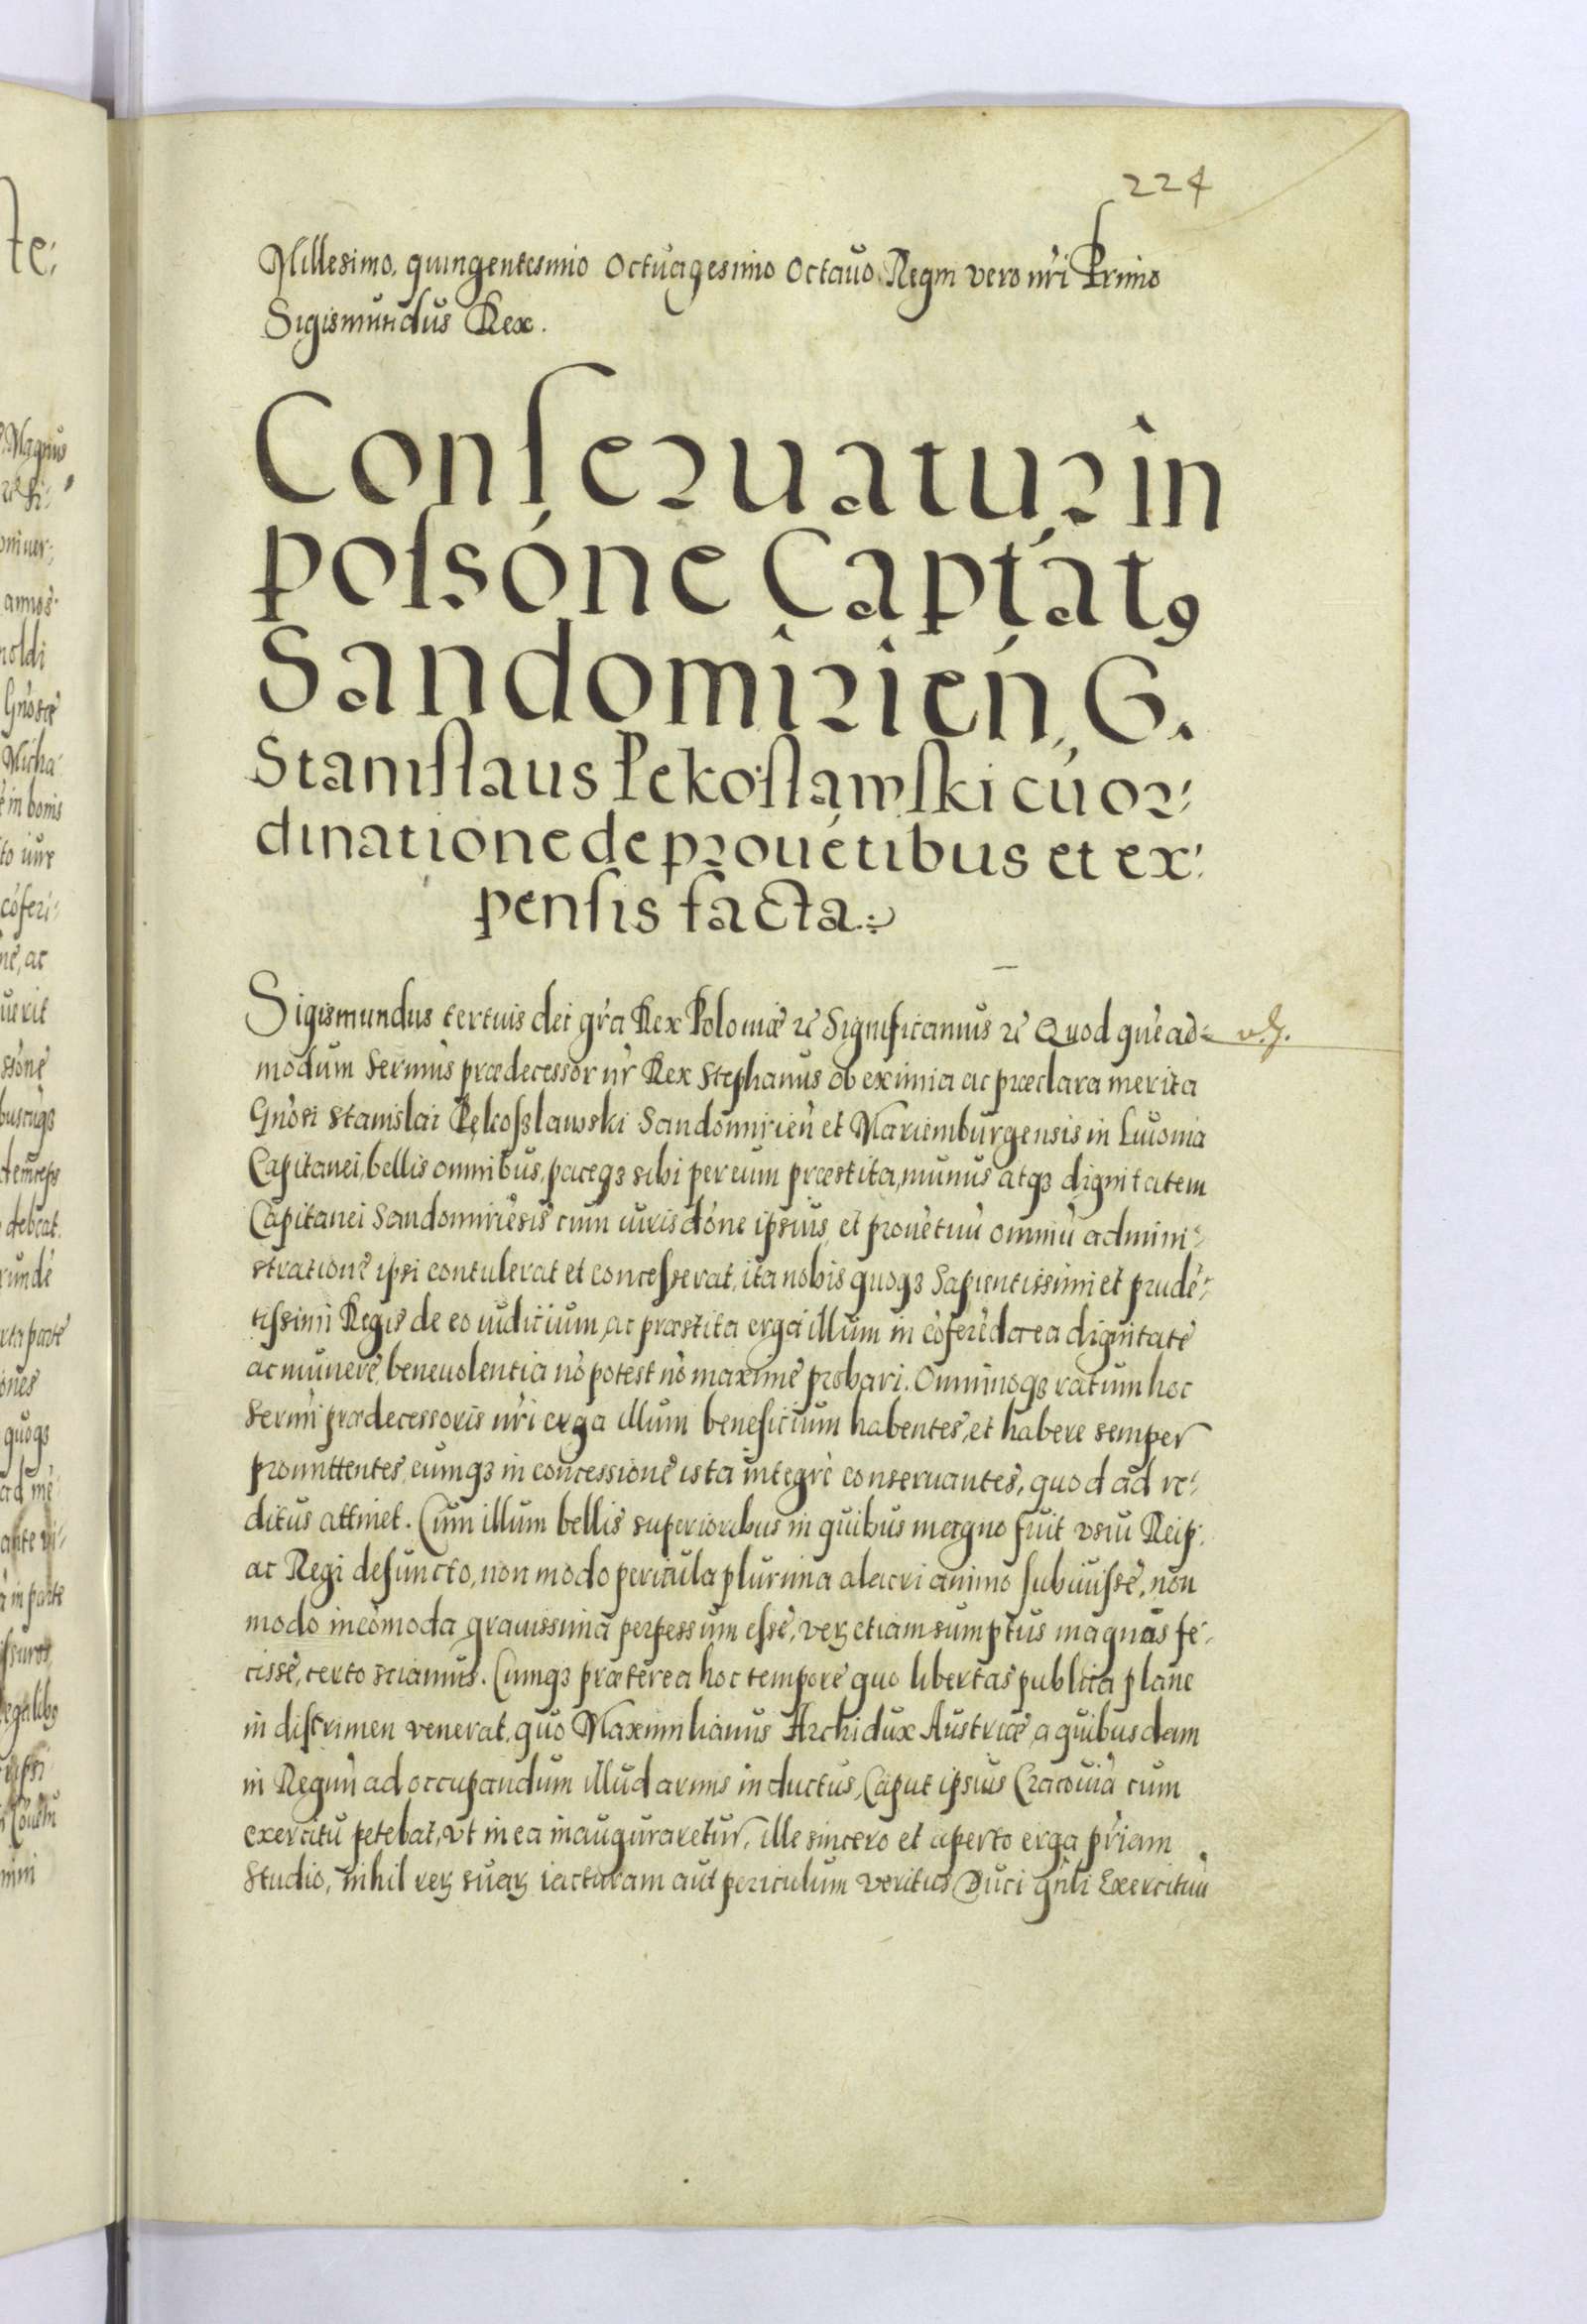 224
Millesimo, quingentesimo octuagesimo octauo, Regni vero nr̃i Primo
Sigismundus Rex.
Conseruatur in
possóne Captat9
Sandomirien̄, G.
Stanislaus Pękosławski cū or-
dinatione de prouētibus et ex-
pensis facta.
Sigismundus tertius dei gr̃a Rex Poloniæ ꝛc Significamus ꝛc Quod quēad-
modum Sermūs prædecessor nr̃ Rex Stephanus ob eximia ac præclara merita
Gnōsi Stanislai Pękoszlawski Sandomirien̄ et Mariemburgensis in Liuonia
Capitanei, bellis omnibus, paceqꝫ sibi per eum præstita, munus atqꝫ dignitatem
Capitanei Sandomiriēsis cum iurisdōne ipsius, et prouētuū omniū admini-
strationē ipsi contulerat et concesserat, ita nobis quoqꝫ Sapientissimi et prudē-
tissimi Regis de eo iudicium, ac præstita erga illum in cōferēda ea dignitate
ac munere, beneuolentia nō potest nō maxime probari. Omninoqꝫ ratum hoc
Sermī prædecessoris nr̃i erga illum beneficium habentes, et habere semper
promittentes, eumqꝫ in concessione ista integrè conseruantes, quod ad re-
ditus attinet. Cum illum bellis superioribus in quibus magno fuit vsui Reip:
ac Regi defuncto, non modo pericula plurima alacri animo subiuisse, non
modo incōmoda grauissima perpessum esse, verꝝ etiam sumptus magnas fe-
cisse, certo sciamus. Cumqꝫ præterea hoc tempore quo libertas publica plane
in discrimen venerat, quo Maximilianus Archidux Austriæ, a quibusdam
in Regnū ad occupandum illud armis inductus, Caput ipsius Cracouiā cum
exercitu petebat, vt in ea inauguraretur, ille sincero et aperto erga pr̃iam
Studio, nihil rerꝝ suarꝝ iacturam aut periculum veritus Duci gn̄li Exercituū